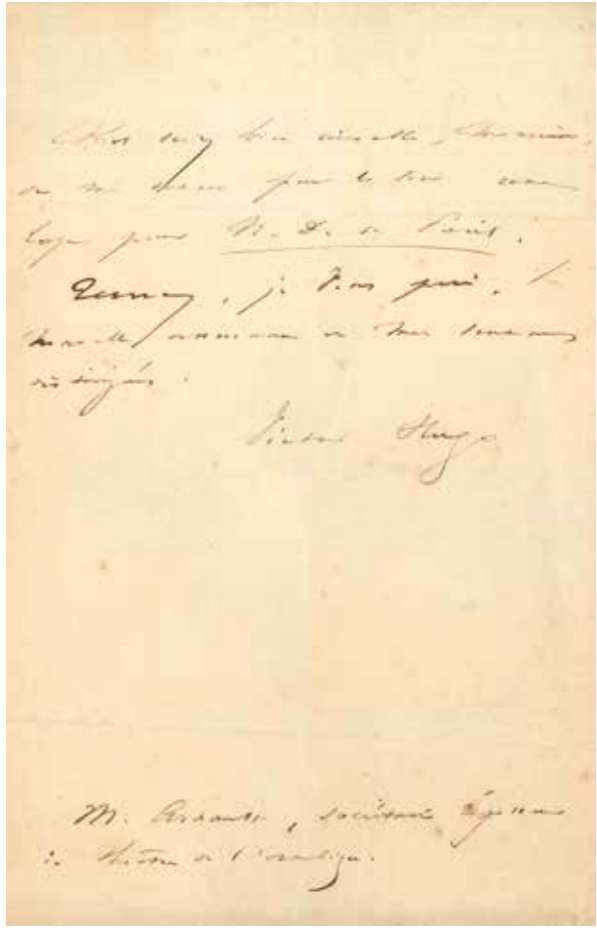 Vous seriez bien aimable, Monsieur,
de me pour ce soir une
loge pour N. D. de Paris.
, je vous prie, la
nouvelle assurance de mes sentiments
distingués.
Victor Hugo
M. , sociétaire
du théâtre de l'